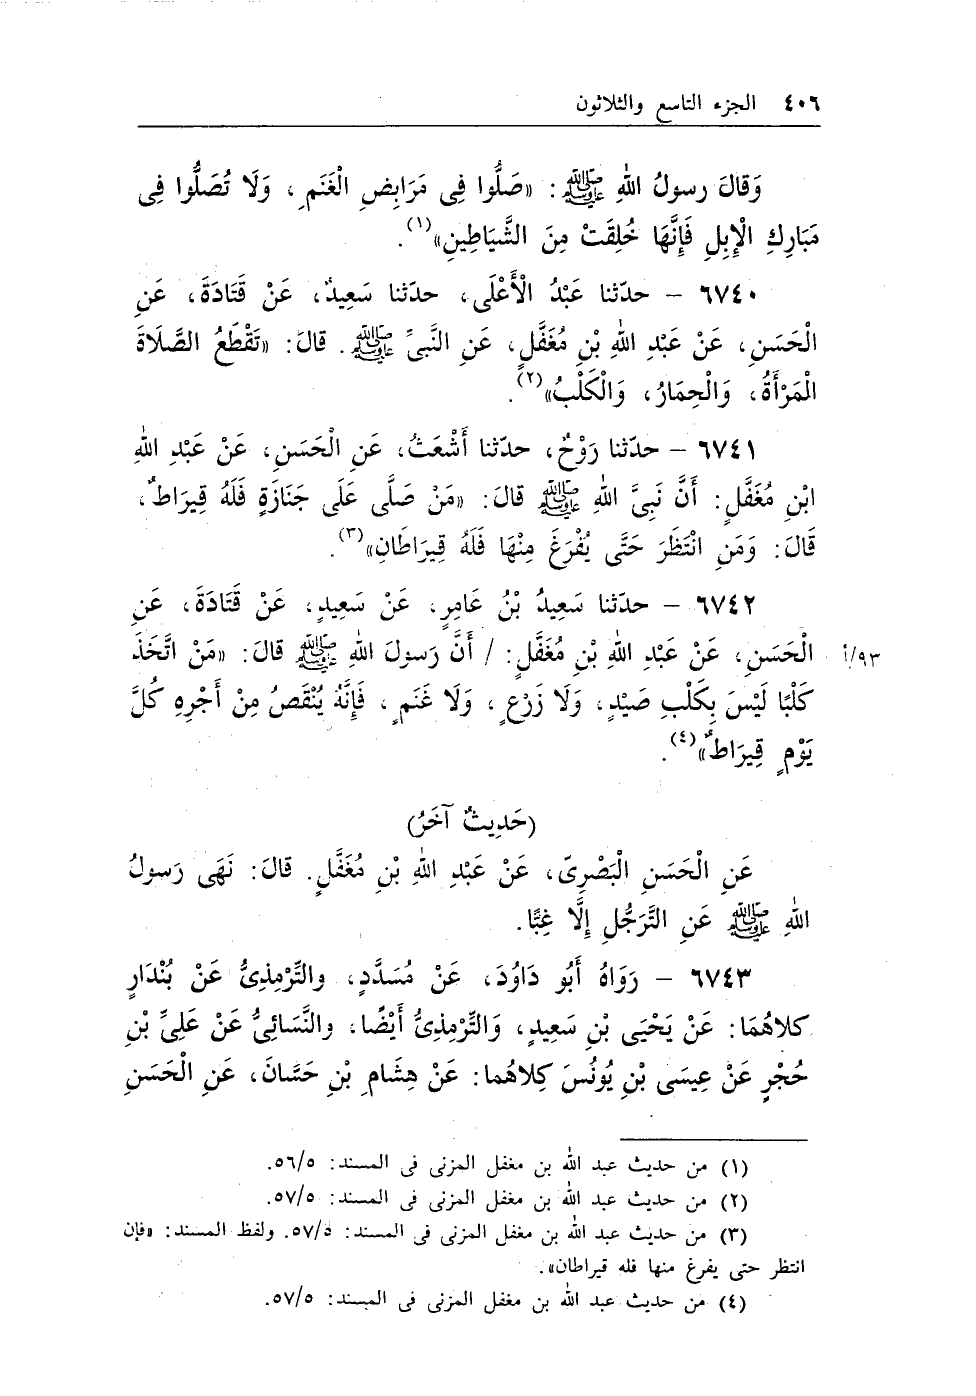 ٤٠٦ الجزء التاسع والثلاثون
وَقالَ رسولُ اللهِ ﷺ : «صَلُّوا فِى مَرَابِضِ الْغَنَمِ ، وَلَا تُصَلُّوا فِى
مَبَارِكِ الْإِبِلِ فَإِنَّهَا خُلِقَتْ مِنَ الشَّيَاطِينِ»(١).
٦٧٤٠ – حدّثنا عَبْدُ الْأَعْلَى، حدّثنا سَعِيدٌ، عَنْ قَتَادَةَ، عَنِ
الْحَسَنِ، عَنْ عَبْدِ اللهِ بْنِ مُغَفَّلٍ، عَنِ النَّبِىِّ ﷺ . قالَ: «تَقْطَعُ الصَّلَاةَ
الْمَرْأَةُ، وَالْحِمَارُ، وَالْكَلْبُ»(٢).
٦٧٤١ – حدّثنا رَوْحٌ، حدّثنا أَشْعَثُ، عَنِ الْحَسَنِ، عَنْ عَبْدِ اللهِ
ابْنِ مُغَفَّلٍ: أَنَّ نَبِىَّ اللهِ ﷺ قالَ: «مَنْ صَلَّى عَلَى جَنَازَةٍ فَلَهُ قِيرَاطٌ،
قَالَ: وَمَنِ انْتَظَرَ حَتَّى يُفْرَغَ مِنْهَا فَلَهُ قِيرَاطَانِ»(٣).
٦٧٤٢ – حدّثنا سَعِيدُ بْنُ عَامِرٍ، عَنْ سَعِيدٍ، عَنْ قَتَادَةَ، عَنِ
الْحَسَنِ، عَنْ عَبْدِ اللهِ بْنِ مُغَفَّلٍ: / أَنَّ رَسولَ اللهِ ﷺ قالَ: «مَنْ اتَّخَذَ ٩٣/أ
كَلْبًا لَيْسَ بِكَلْبِ صَيْدٍ، وَلَا زَرْعٍ، وَلَا غَنَمٍ، فَإِنَّهُ يُنْقَصُ مِنْ أَجْرِهِ كُلَّ
يَوْمٍ قِيرَاطٌ»(٤).
(حَدِيثٌ آخَرُ)
عَنِ الْحَسَنِ الْبَصْرِىِّ، عَنْ عَبْدِ اللهِ بْنِ مُغَفَّلٍ. قالَ: نَهَى رَسولُ
اللهِ ﷺ عَنِ التَّرَجُّلِ إِلَّا غِبًّا.
٦٧٤٣ – رَوَاهُ أَبُو دَاوُدَ، عَنْ مُسَدَّدٍ، والتِّرْمِذِىُّ عَنْ بُنْدَارٍ
كلاهُمَا: عَنْ يَحْيَى بْنِ سَعِيدٍ، وَالتِّرْمِذِىُّ أَيْضًا، والنَّسَائِىُّ عَنْ عَلِىِّ بْنِ
حُجْرٍ عَنْ عِيسَى بْنِ يُونُسَ كِلاهُما: عَنْ هِشَامِ بْنِ حَسَّانَ، عَنِ الْحَسَنِ
(١) من حديث عبد الله بن مغفل المزنى فى المسند: ٥٦/٥.
(٢) من حديث عبد الله بن مغفل المزنى فى المسند: ٥٧/٥.
(٣) من حديث عبد الله بن مغفل المزنى فى المسند: ٥٧/٥. ولفظ المسند: «فإن
انتظر حتى يفرغ منها فله قيراطان».
(٤) من حديث عبد الله بن مغفل المزنى فى المسند: ٥٧/٥.